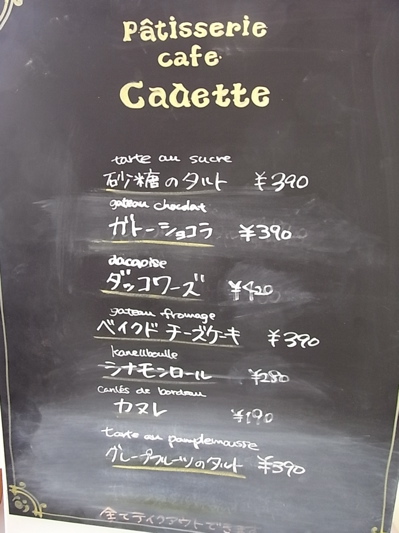 Pâtisserie
cafe
Cadette
tarte au sucre
砂糖のタルト ¥390
gateau chocolat
ガトーショコラ ¥390
dacqoise
ダッコワーズ ¥420
gateau fromage
ベイクド チーズケーキ ¥390
kanellbulle
シナモンロール ¥280
canlés de bordeau
カヌレ ¥190
tarte au pamplemousse
グレープフルーツのタルト ¥390
全てテイクアウトできます